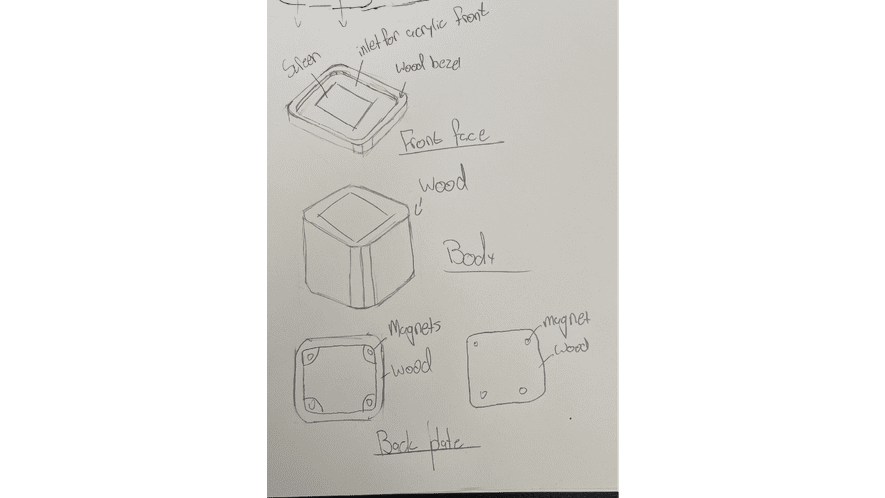 Screen
inlet for acrylic front
Wood bezel
Front face
Wood
Body
Magnets
Wood
magnet
Wood
Back plate